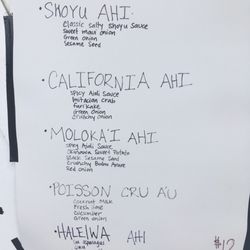 • SHOYU AHI.
Classic Salty Shoyu Sauce
Sweet Maui Onion
Green Onion
Sesame Seed
• CALIFORNIA AHI
Spicy Aioli Sauce
Imitacion Crab
Furikake
Green Onion
Crunchy Onion
• MOLOKA'I AHI
Spicy Aioli Sauce
Okinawa Sweet Potato
Black Sesame Seed
Crunchy Bubu Arare
Red Onion
• POISSON CRU A'U
Coconut Milk
Fresh Lime
Cucumber
Green Onion
• HALEIWA AHI
Sea Asparagus
$13